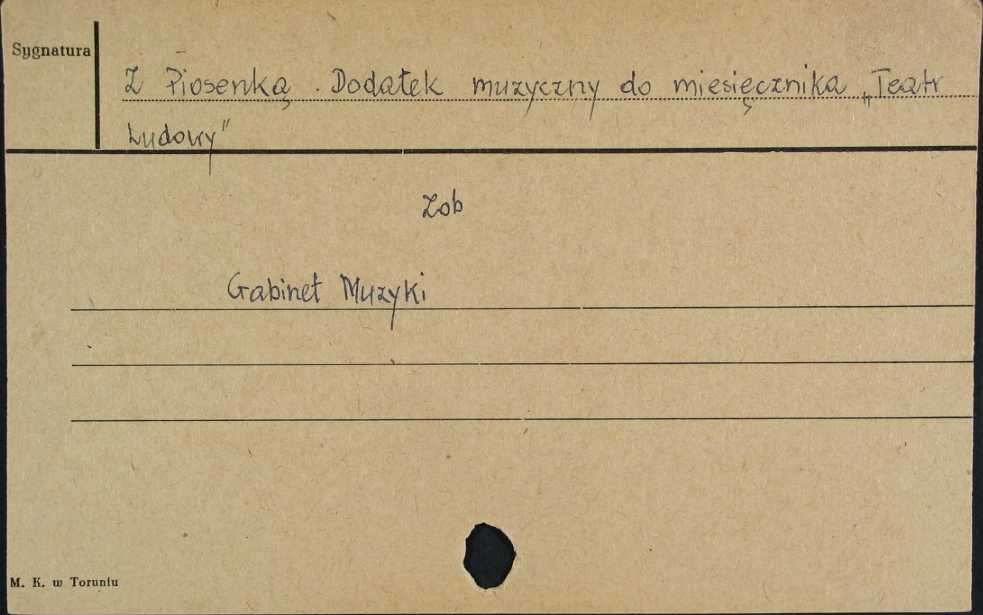 Sygnatura
Z Piosenką. Dodatek muzyczny do miesięcznika „Teatr
Ludowy"
Zob
Gabinet Muzyki
M. K. w Toruniu